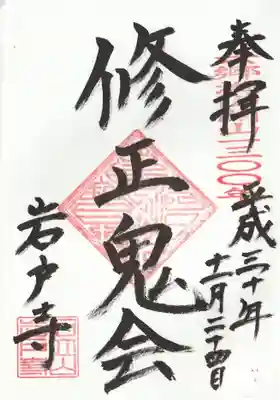 奉拝
平成三十年
十一月二十四日
修正鬼会
岩戸寺